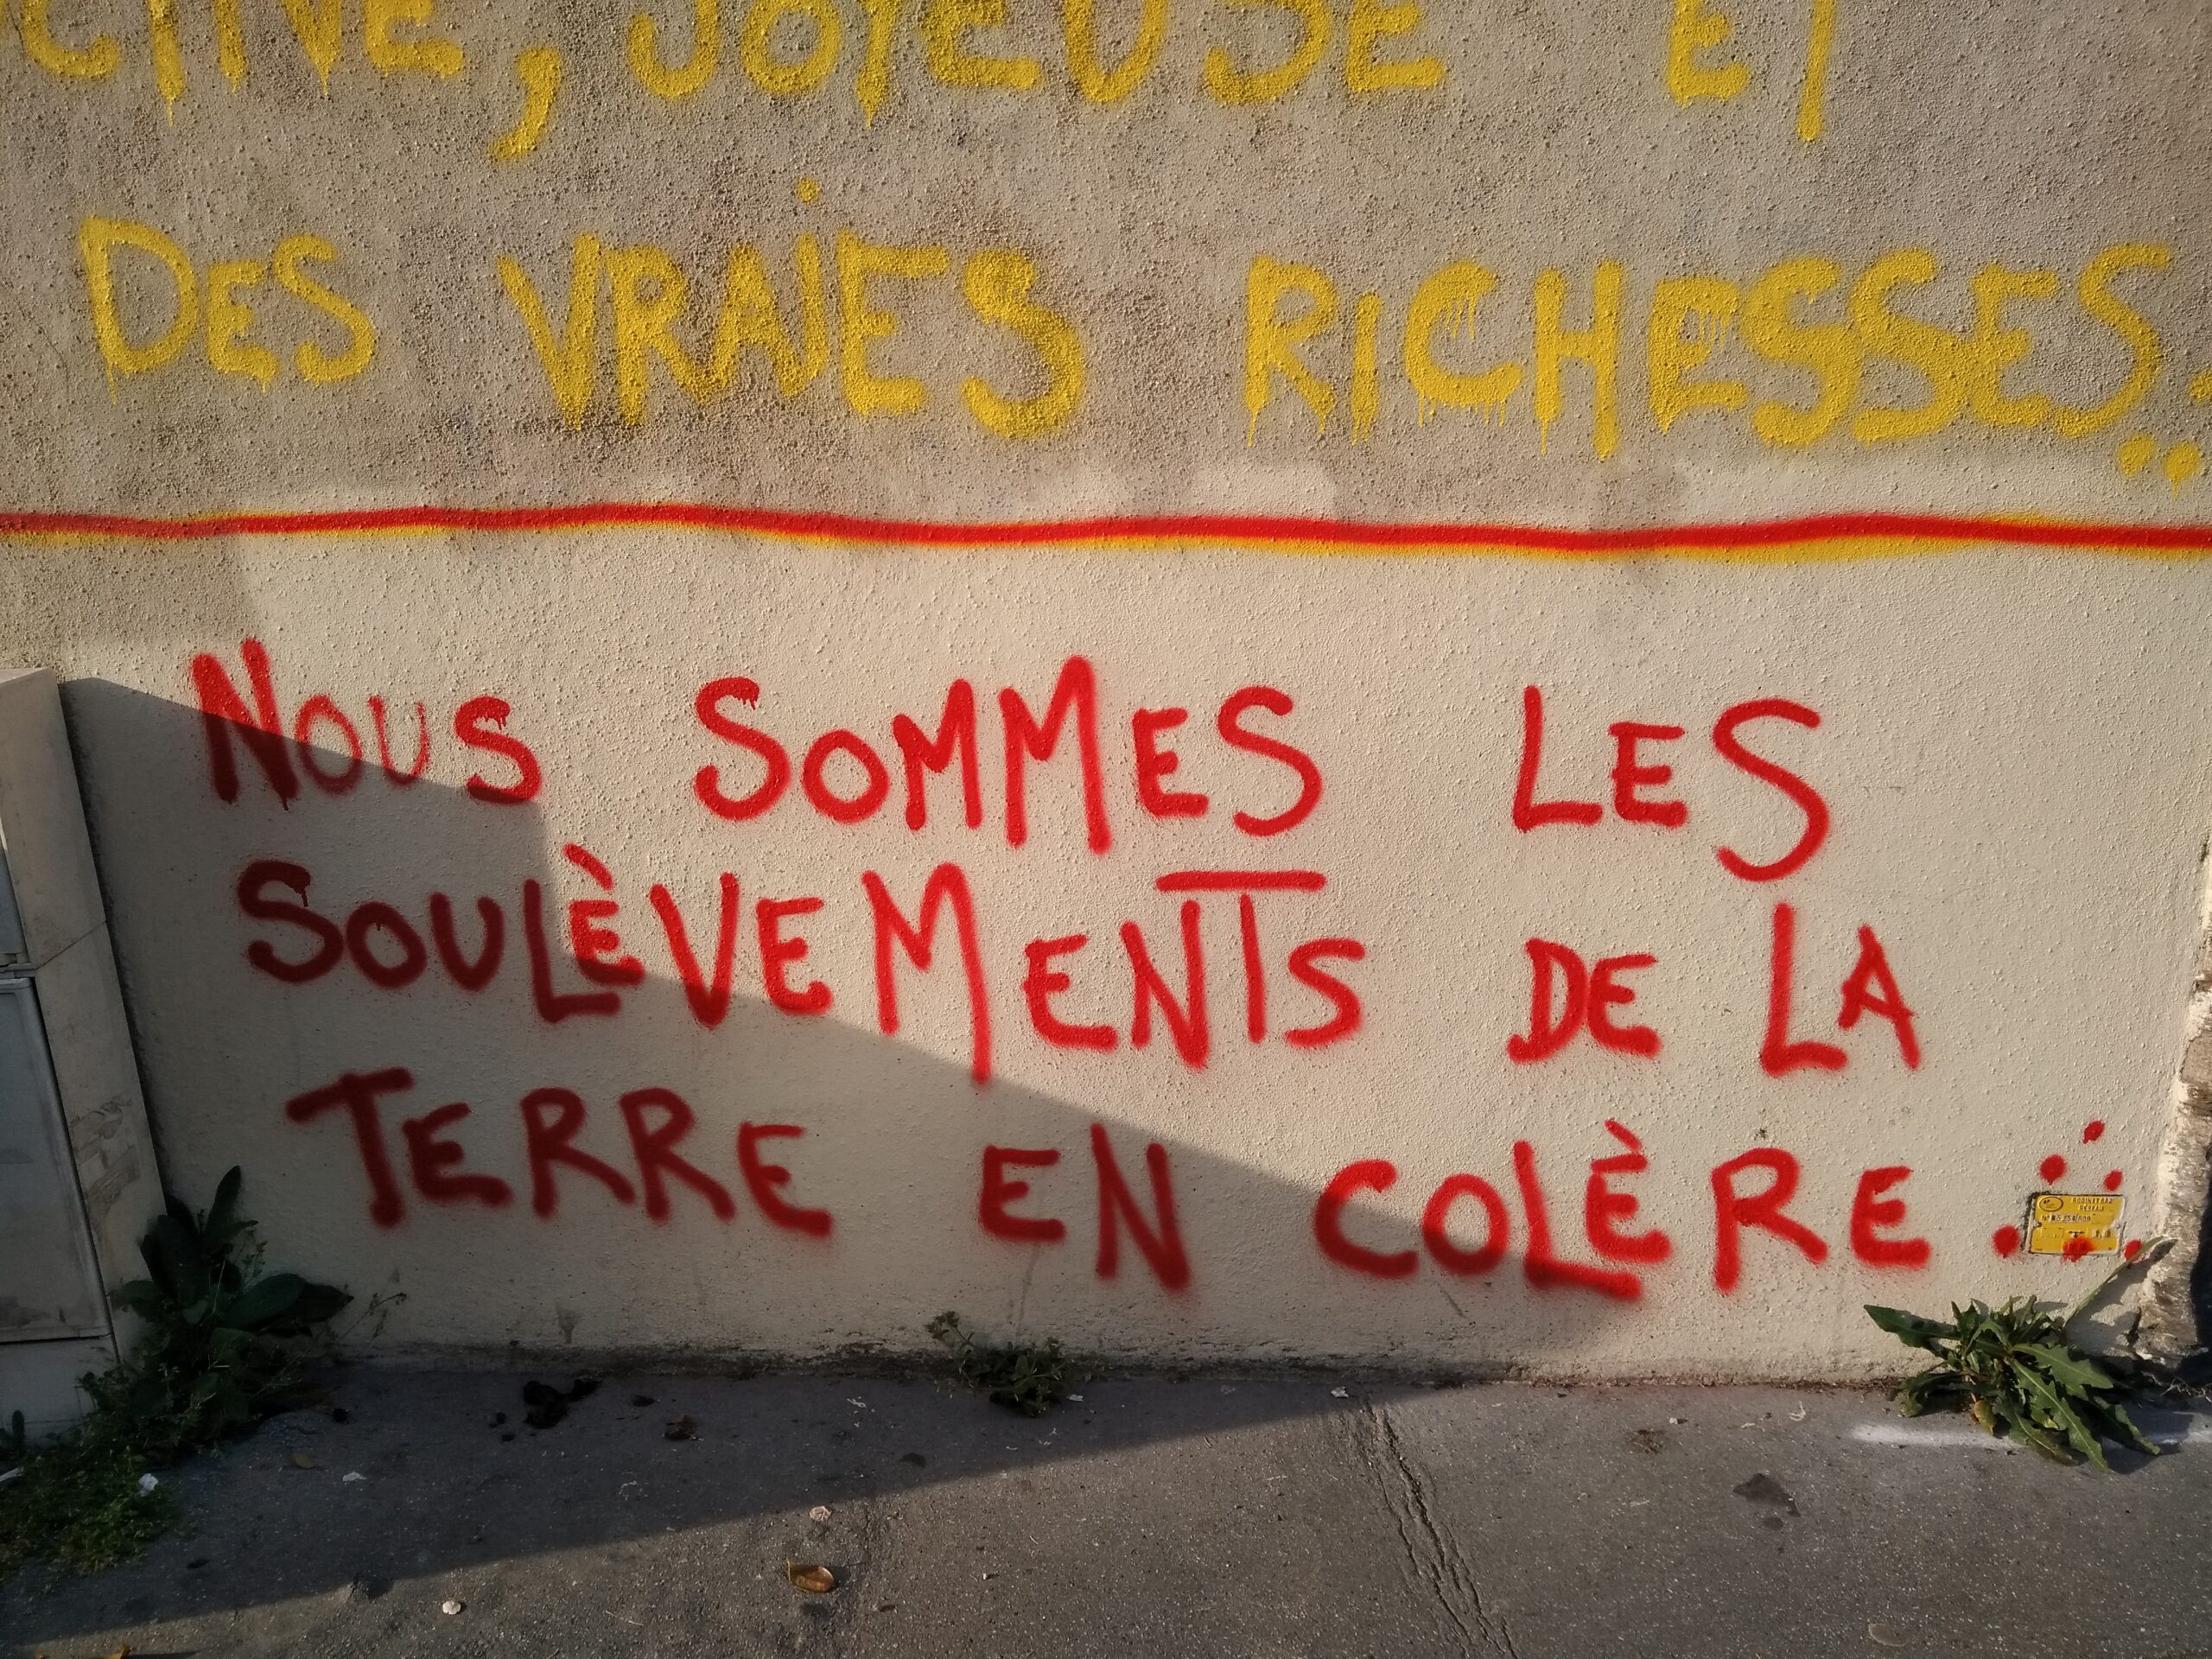 JOYEUSE ET
DES VRAIES RICHESSES...
NOUS SOMMES LES
SOULÈVEMENTS DE LA
TERRE EN COLÈRE
ROBINET GAZ
RÉSEAU